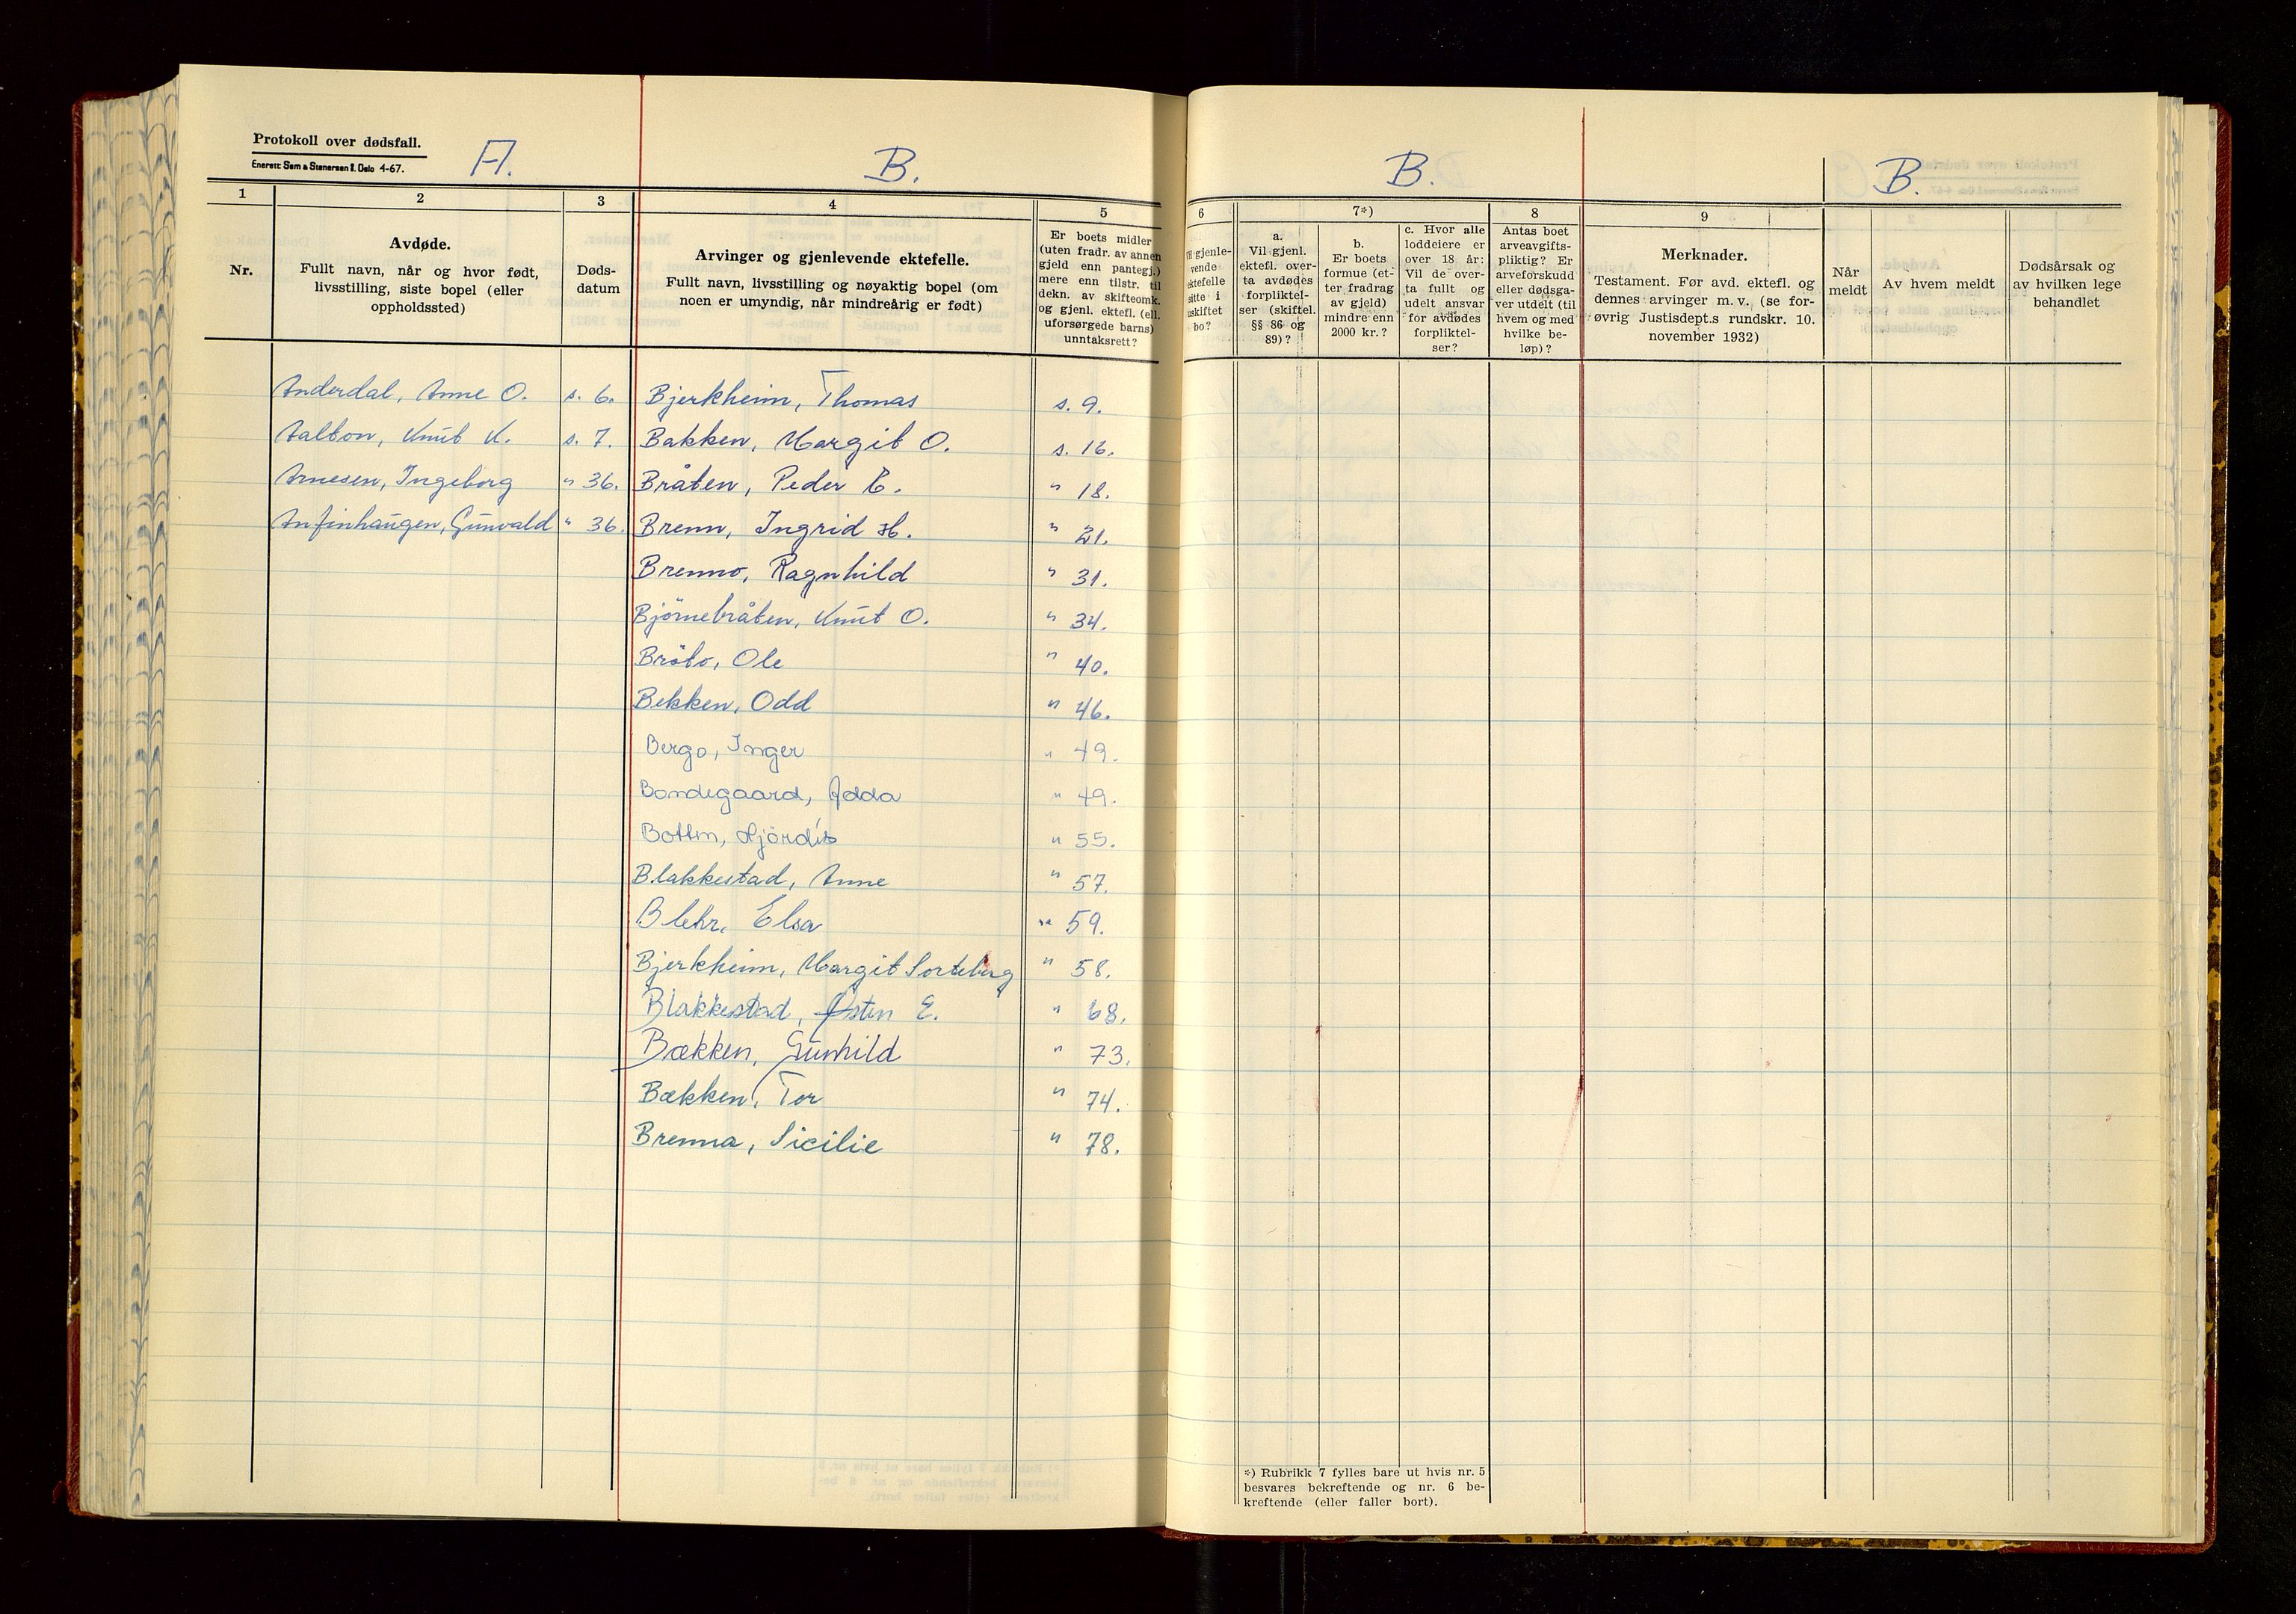 Protokoll over dødsfall.
Enerett: Sem & Stenersen A/S. Oslo 4-67.
A.
B.
B.
B.
1
2
3
4
5
6
7*)
8
9
Nr.
Avdøde.
Fullt navn, når og hvor født,
livsstilling, siste bopel (eller
oppholdssted)
Døds-
datum
Arvinger og gjenlevende ektefelle.
Fullt navn, livsstilling og nøyaktig bopel (om
noen er umyndig, når mindreårig er født)
Er boets midler
(uten fradr. av annen
gjeld enn pantegj.)
mere enn tilstr. til
dekn. av skifteomk.
og gjenl. ektefl. (ell.
uforsørgede barns)
unntaksrett?
gjenle-
vende
ektefelle
sitte i
uskiftet
bo?
a.
Vil gjenl.
ektefl. over-
ta avdødes
forpliktel-
ser (skiftel.
§§ 86 og
89)?
b.
Er boets
formue (et-
ter fradrag
av gjeld)
mindre enn
2000 kr.?
c. Hvor alle
loddeiere er
over 18 år:
Vil de over-
ta fullt og
udelt ansvar
for avdødes
forpliktel-
ser?
Antas boet
arveavgifts-
pliktig? Er
arveforskudd
eller dødsga-
ver utdelt (til
hvem og med
hvilke be-
løp)?
Merknader.
Testament. Før avd. ektefl. og
dennes arvinger m. v. (se for-
øvrig Justisdept.s rundskr. 10.
november 1932)
Når
meldt
Av hvem meldt
Dødsårsak og
av hvilken lege
behandlet
Anderdal, Anne O. s. 6. Bjerkheim, Thomas s. 9.
Aalton, Knut K. s. 7. Bakken, Margit O. s. 16.
Arnesen, Ingeborg " 36. Bråten, Peder E. " 18.
Anfinhaugen, Gunvald " 36. Brenn, Ingrid H. " 21.
Brenno, Ragnhild " 31.
Björnebråten, Knut O. " 34.
Bråto, Ole " 40.
Bekken, Odd " 46.
Bergo, Inger " 49.
Bondegaard, Adda " 49.
Botten, Hjördis " 55.
Blakkestad, Anne " 57.
Blehr, Elsa " 59.
Bjerkheim, Margit Sorteberg " 58.
Blakkestad, Østen E. " 68.
Bækken, Gunhild " 73.
Bækken, Tor " 74.
Brenna, Sicilie " 78.
*) Rubrikk 7 fylles bare ut hvis nr. 5
besvares bekreftende og nr. 6 be-
kreftende (eller faller bort).